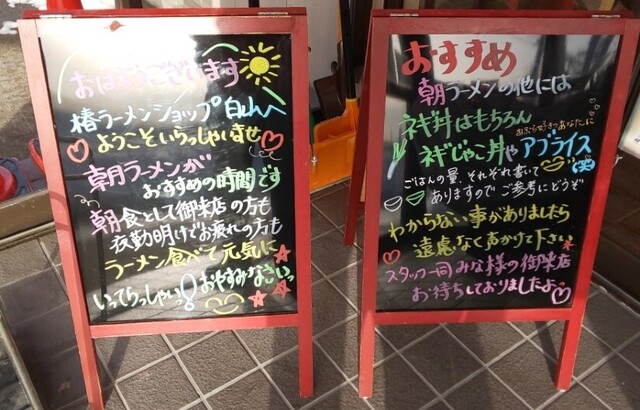 おはようございます
椿ラーメンショップ白山へ
ようこそいらっしゃいませ
朝ラーメンが
おすすめの時間です
朝食として御来店の方も
夜勤明けでお疲れの方も
ラーメン食べて元気に
いってらっしゃい!おやすみなさいっ
おすすめ
朝ラーメンの他には
ネギ丼はもちろん
ネギじゃこ丼やアブライス
ごはんの量、それぞれ書いて
ありますのでご参考にどうぞ
わからない事がありましたら
遠慮なく声かけて下さい
スタッフ一同みな様の御来店
お待ちしておりましたよ